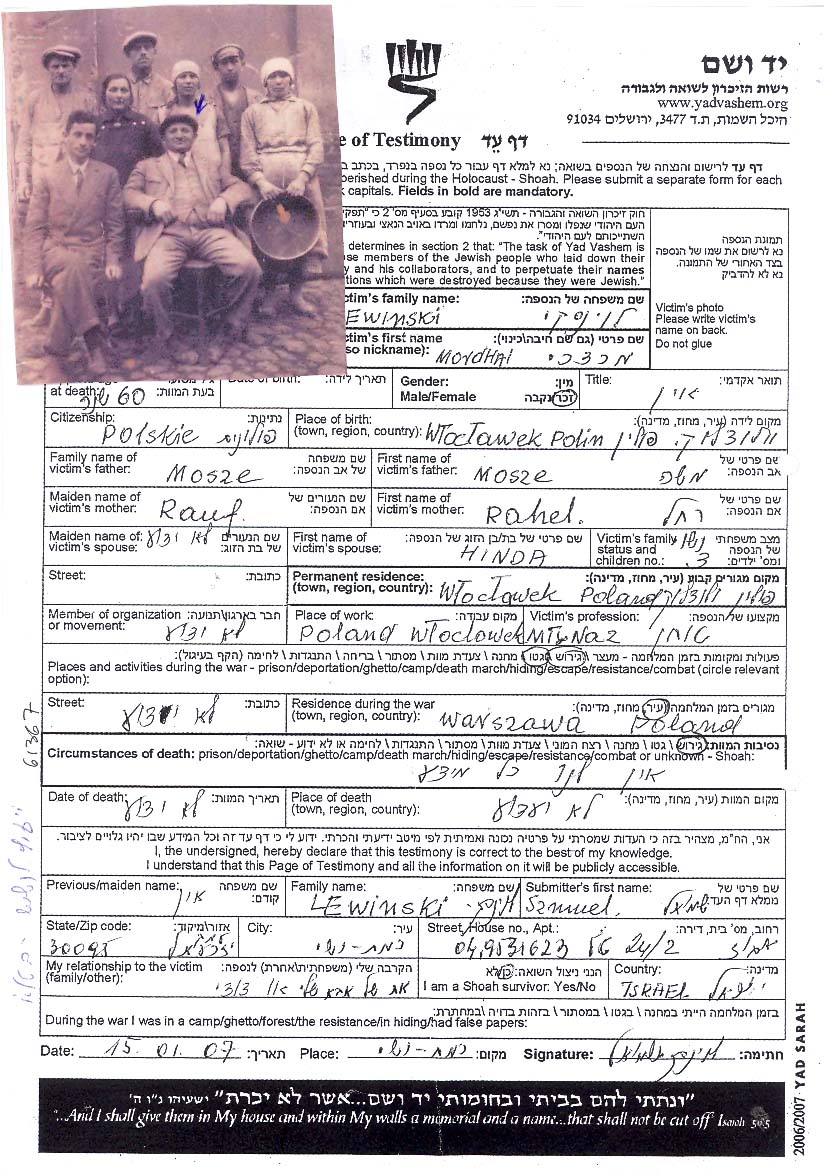 יד ושם
רשות הזיכרון לשואה ולגבורה
www.yadvashem.org
היכל השמות, ת.ד 3477, ירושלים 91034
e of Testimony דף עד
דף עד לרישום והנצחה של הנספים בשואה; נא למלא דף עבור כל נספה בנפרד, בכתב
erished during the Holocaust - Shoah. Please submit a separate form for each
capitals. Fields in bold are mandatory.
חוק זיכרון השואה והגבורה - תשי"ג 1953 קובע בסעיף מס' 2 כי
העם היהודי שנפלו ומסרו את נפשם, נלחמו ומרדו באויב הנאצי ובעוזריו
השתייכותם לעם היהודי".
determines in section 2 that: "The task of Yad Vashem is
se members of the Jewish people who laid down their
y and his collaborators, and to perpetuate their names
tions which were destroyed because they were Jewish."
תמונת הנספה
נא לרשום את שמו של הנספה
בצד האחורי של התמונה.
נא לא להדביק
Victim's photo
Please write victim's
name on back.
Do not glue
ctim's family name: שם משפחה של הנספה:
EWINSKI לוינסקי
ctim's first name שם פרטי (גם שם חיבה\כינוי):
so nickname): MORDHAI מרדכי
at death: 60 שנה בעת המוות:
Date of birth: תאריך לידה:
Gender: מין:
Male/Female זכר נקבה
Title: תואר אקדמי:
אין
Citizenship: נתינות:
Polskie פולנית
Place of birth: מקום לידה (עיר, מחוז, מדינה):
(town, region, country): Włocławek Polin פולין
Family name of victim's father: MOSZE שם משפחה של אב הנספה:
First name of victim's father: MOSZE משה שם פרטי של אב הנספה:
Maiden name of victim's mother: Rauf שם הנעורים של אם הנספה:
First name of victim's mother: Rahel. רחל שם פרטי של אם הנספה:
Maiden name of victim's spouse: לא ידוע שם הנעורים של בת הזוג:
First name of victim's spouse: HINDA שם פרטי של בת/בן הזוג של הנספה:
Victim's family status and children no.: נשוי 3 מצב משפחתי של הנספה ומס' ילדים:
Street: כתובת:
Permanent residence: מקום מגורים קבוע (עיר, מחוז, מדינה):
(town, region, country): Włocławek Poland פולין
Member of organization or movement: לא ידוע חבר בארגון\תנועה:
Place of work: מקום עבודה:
Poland Włocłowek
Victim's profession: מקצועו של הנספה:
טוחן
פעולות ומקומות בזמן המלחמה - מעצר \ גירוש \ גטו \ מחנה \ צעדת מוות \ מסתור \ בריחה \ התנגדות \ לחימה (הקף בעיגול):
Places and activities during the war - prison/deportation/ghetto/camp/death march/hiding/escape/resistance/combat (circle relevant
option):
Street: לא ידוע כתובת:
Residence during the war מגורים בזמן המלחמה (עיר, מחוז, מדינה):
(town, region, country): Warszawa Poland
נסיבות המוות: גירוש \ גטו \ מחנה \ רצח המוני \ צעדת מוות \ מסתור \ התנגדות \ לחימה או לא ידוע - שואה:
Circumstances of death: prison/deportation/ghetto/camp/death march/hiding/escape/resistance/combat or unknown - Shoah:
אין לנו כל מידע
Date of death: לא ידוע תאריך המוות:
Place of death מקום המוות (עיר, מחוז, מדינה):
(town, region, country): לא ידוע
אני, החח"מ, מצהיר בזה כי העדות שמסרתי על פרטיה נכונה ואמיתית לפי מיטב ידיעתי והכרתי. ידוע לי כי דף עד זה וכל המידע שבו יהיו גלויים לציבור.
I, the undersigned, hereby declare that this testimony is correct to the best of my knowledge.
I understand that this Page of Testimony and all the information on it will be publicly accessible.
Previous/maiden name: אין שם משפחה קודם:
Family name: שם משפחה:
LEWINSKI
Submitter's first name: שם פרטי של ממלא דף העד:
Szmuel. שמואל
State/Zip code: אזור\מיקוד:
30095
City: עיר:
רמת-ישי
Street, House no., Apt.: רחוב, מס' בית, דירה:
04,9531623 24/2
My relationship to the victim (family/other): הקרבה שלי (משפחתית\אחרת) לנספה:
I am a Shoah survivor: Yes/No הנני ניצול השואה: כן\לא
Country: מדינה:
ISRAEL ישראל
בזמן המלחמה הייתי במחנה \ בגטו \ במסתור \ בזהות בדויה \ במחתרת:
During the war I was in a camp/ghetto/forest/the resistance/in hiding/had false papers:
Date: 15.01.07 תאריך: Place: רמת-ישי מקום: Signature: חתימה:
"ונתתי להם בביתי ובחומותי יד ושם...אשר לא יכרת" ישעיהו נ"ו ה'
"...And I shall give them in My house and within My walls a memorial and a name...that shall not be cut off" Isaiah 56:5
61367
2006/2007 - YAD SARAH